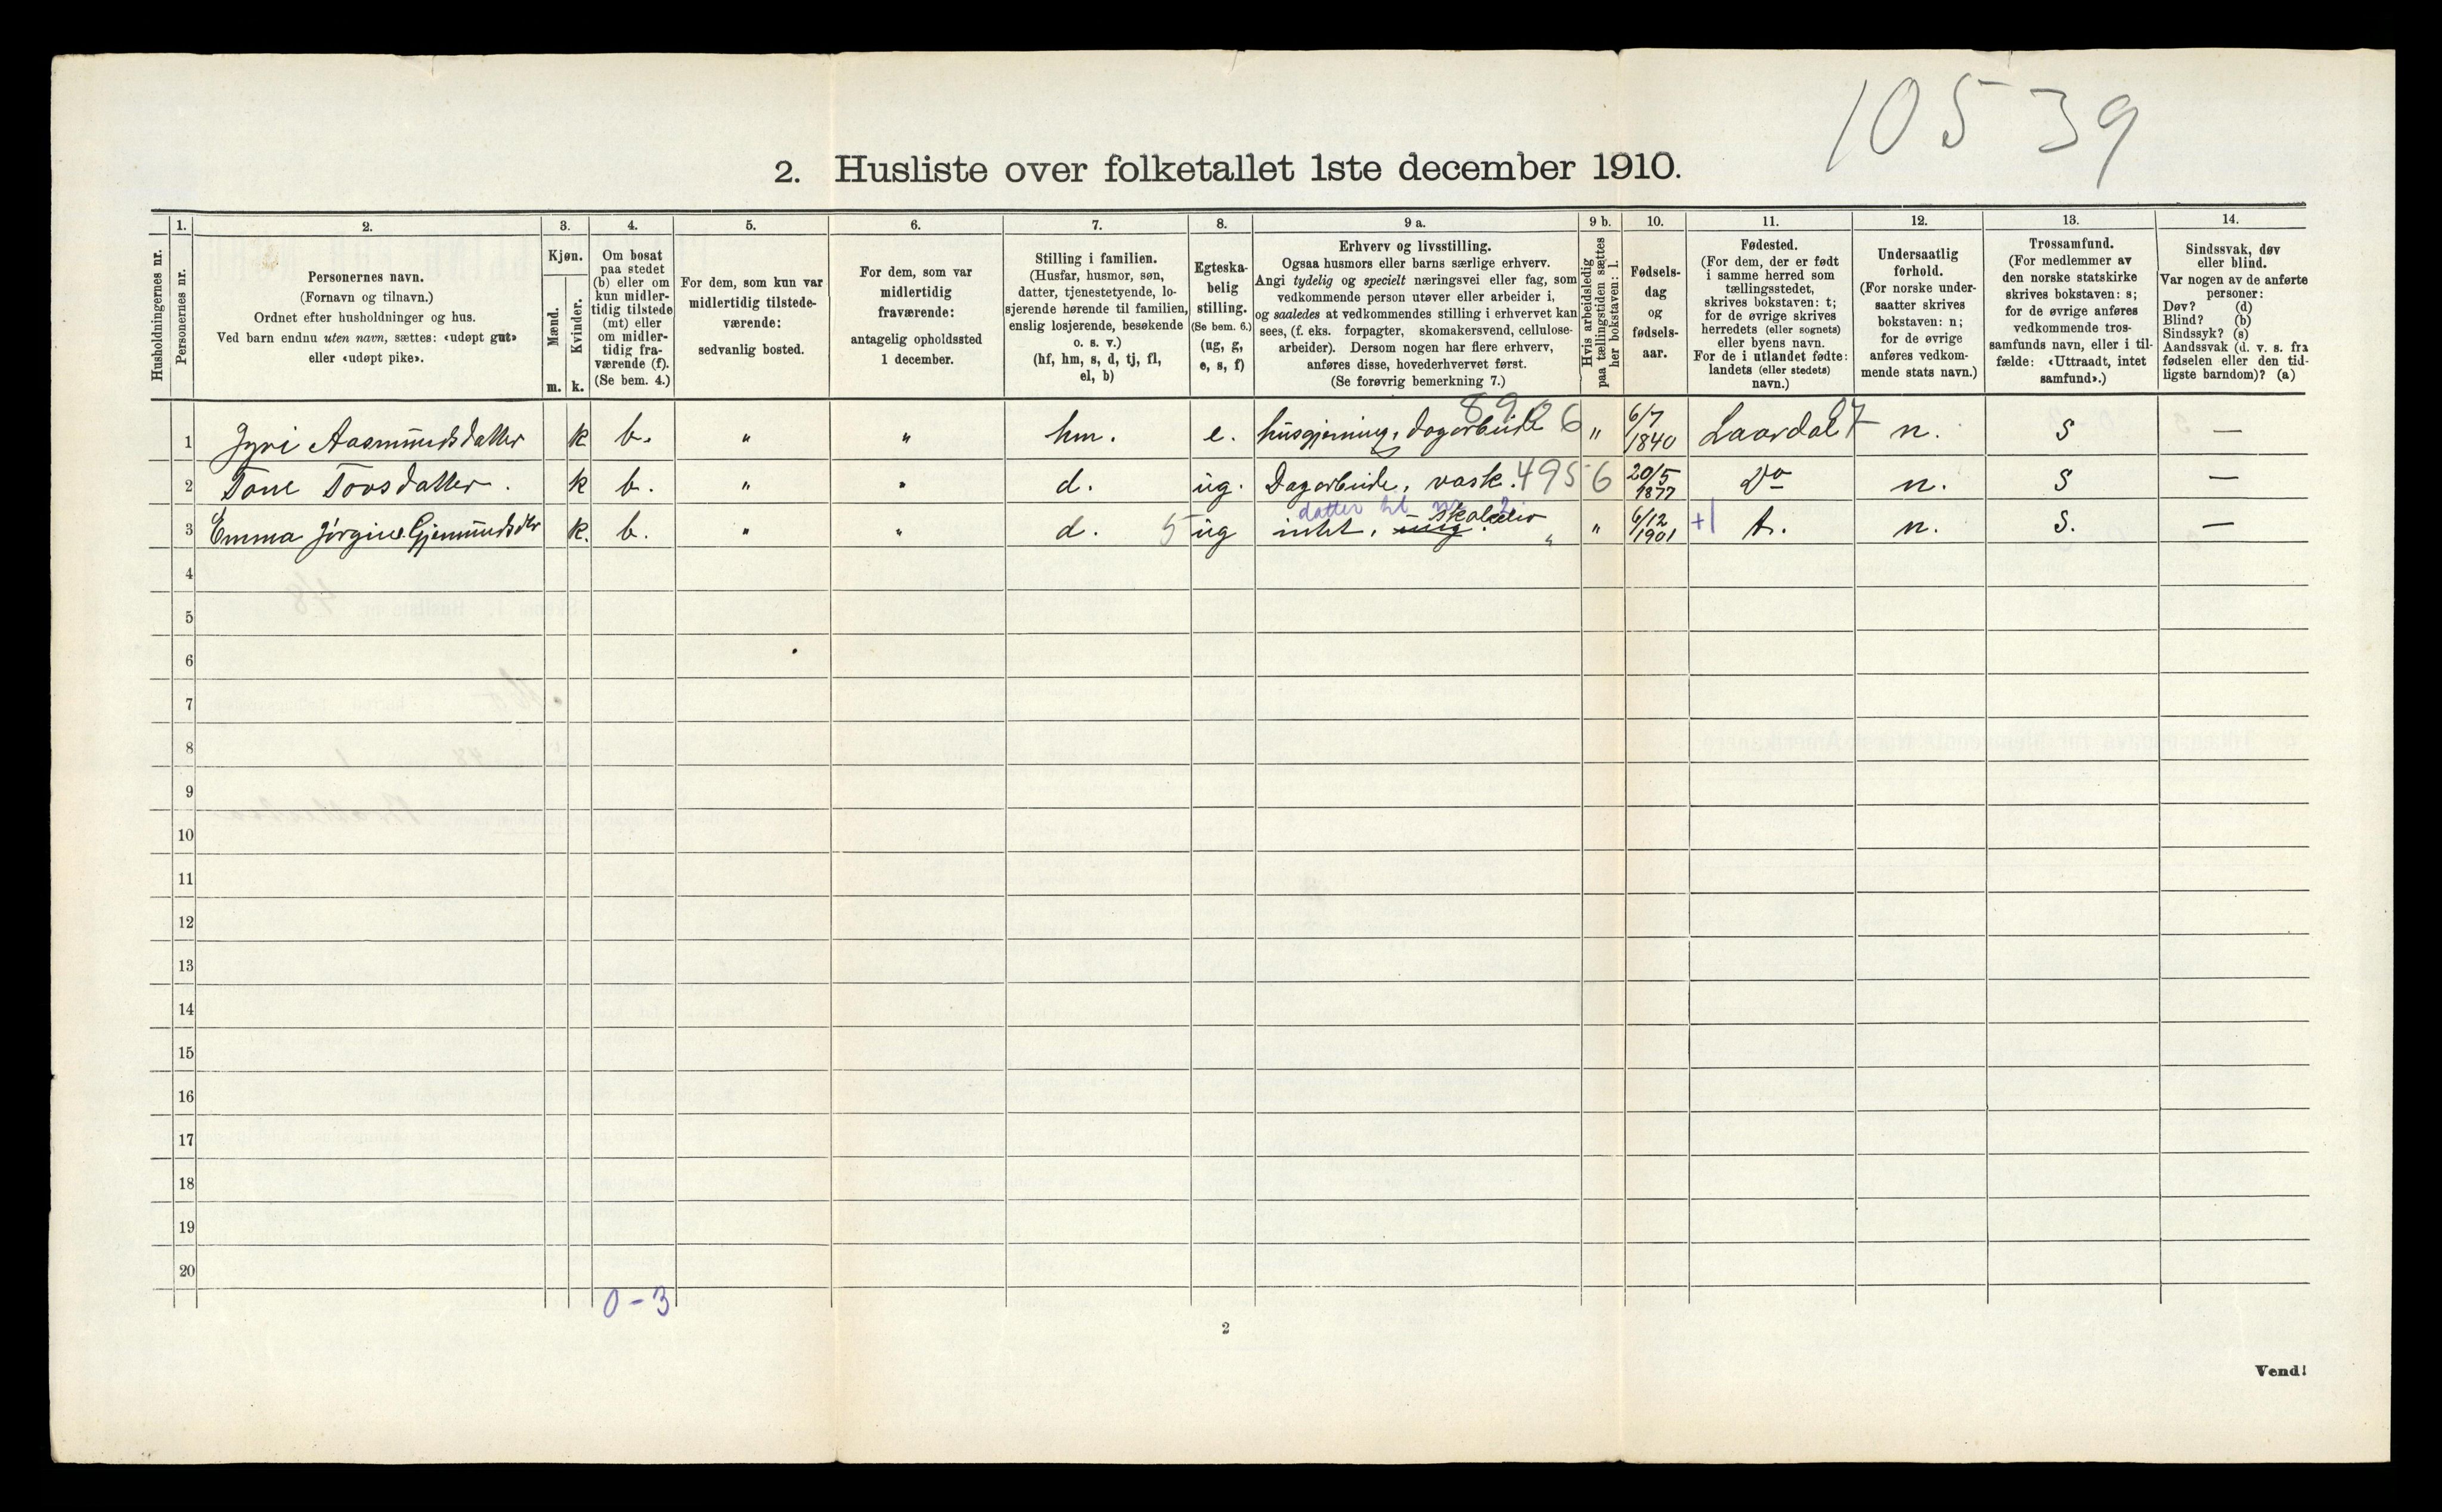 10539
2. Husliste over folketallet 1ste december 1910.
Husholdningernes nr.
1.
Personernes nr.
2.
Personernes navn.
(Fornavn og tilnavn.)
Ordnet efter husholdninger og hus.
Ved barn endnu uten navn, sættes: «udøpt gut»
eller «udøpt pike».
3.
Kjøn.
Mænd.
m.
Kvinder.
k.
4.
Om bosat
paa stedet
(b) eller om
kun midler-
tidig tilstede
(mt) eller
om midler-
tidig fra-
værende (f).
(Se bem. 4.)
5.
For dem, som kun var
midlertidig tilstede-
værende:
sedvanlig bosted.
6.
For dem, som var
midlertidig
fraværende:
antagelig opholdssted
1 december.
7.
Stilling i familien.
(Husfar, husmor, søn,
datter, tjenestetyende, lo-
sjerende hørende til familien,
enslig losjerende, besøkende
o. s. v.)
(hf, hm, s, d, tj, fl,
el, b)
8.
Egteska-
belig
stilling.
(Se bem. 6.)
(ug, g,
e, s, f)
9 a.
Erhverv og livsstilling.
Ogsaa husmors eller barns særlige erhverv.
Angi tydelig og specielt næringsvei eller fag, som
vedkommende person utøver eller arbeider i,
og saaledes at vedkommendes stilling i erhvervet kan
sees, (f. eks. forpagter, skomakersvend, cellulose-
arbeider). Dersom nogen har flere erhverv,
anføres disse, hovederhvervet først.
(Se forøvrig bemerkning 7.)
9 b.
Hvis arbeidsledig
paa tællingstiden sættes
her bokstaven: l.
10.
Fødsels-
dag
og
fødsels-
aar.
11.
Fødested.
(For dem, der er født
i samme herred som
tællingsstedet,
skrives bokstaven: t;
for de øvrige skrives
herredets (eller sognets)
eller byens navn.
For de i utlandet fødte:
landets (eller stedets)
navn.)
12.
Undersaatlig
forhold.
(For norske under-
saatter skrives
bokstaven: n;
for de øvrige
anføres vedkom-
mende stats navn.)
13.
Trossamfund.
(For medlemmer av
den norske statskirke
skrives bokstaven: s;
for de øvrige anføres
vedkommende tros-
samfunds navn, eller i til-
fælde: «Uttraadt, intet
samfund».)
14.
Sindssvak, døv
eller blind.
Var nogen av de anførte
personer:
Døv? (d)
Blind? (b)
Sindssyk? (s)
Aandssvak (d. v. s. fra
fødselen eller den tid-
ligste barndom)? (a)
1 Jyri Aasmundsdatter k b. " " hm. e. husgjerning, dagarbeide 6 " 6/7 1840 Laardal 27 n. s —
2 Tone Tovsdatter. k b. " " d. ug. Dagarbeide, vask. 495 6 20/5 1877 Do n. s —
datter til nr. 2
3 Emma Jørgine Gjermundsdtr k. b. " " d. 5 ug intet, ung " " 6/12 1901 +1 t. n. s. —
4
5
6
7
8
9
10
11
12
13
14
15
16
17
18
19
20
0 - 3
2
Vend!